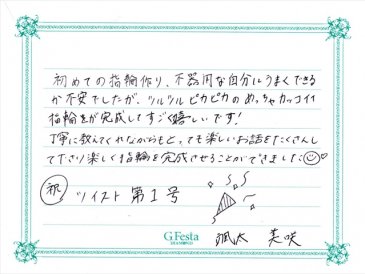 初めての指輪作り、不器用な自分にうまくできる
か不安でしたが、ツルツルピカピカのめっちゃカッコイイ
指輪が完成しすごく嬉しいです!
丁寧に教えてくれながらもとっても楽しいお話をたくさんし
て下さり楽しく指輪を完成させることができました
祝 ツイスト 第1号
G.Festa
DIAMOND
颯太 美咲